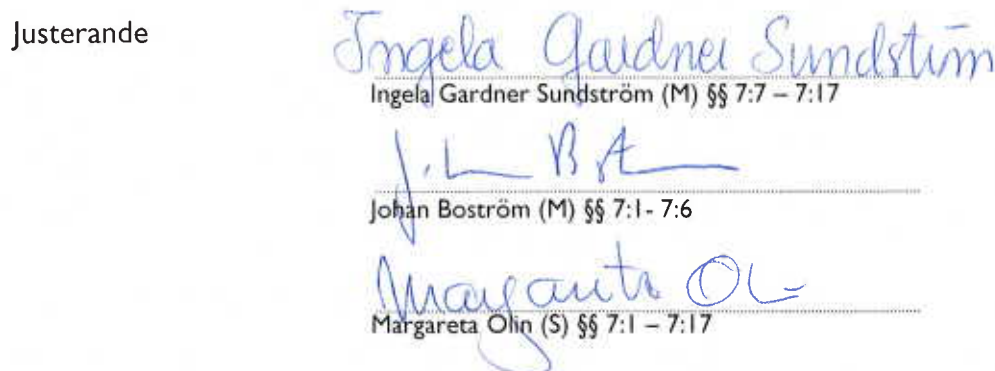 Justerande
Ingela Gardner Sundström
Ingela Gardner Sundström (M) §§ 7:7 – 7:17
Johan Boström (M) §§ 7:1- 7:6
Margareta Ol
Margareta Olin (S) §§ 7:1 – 7:17